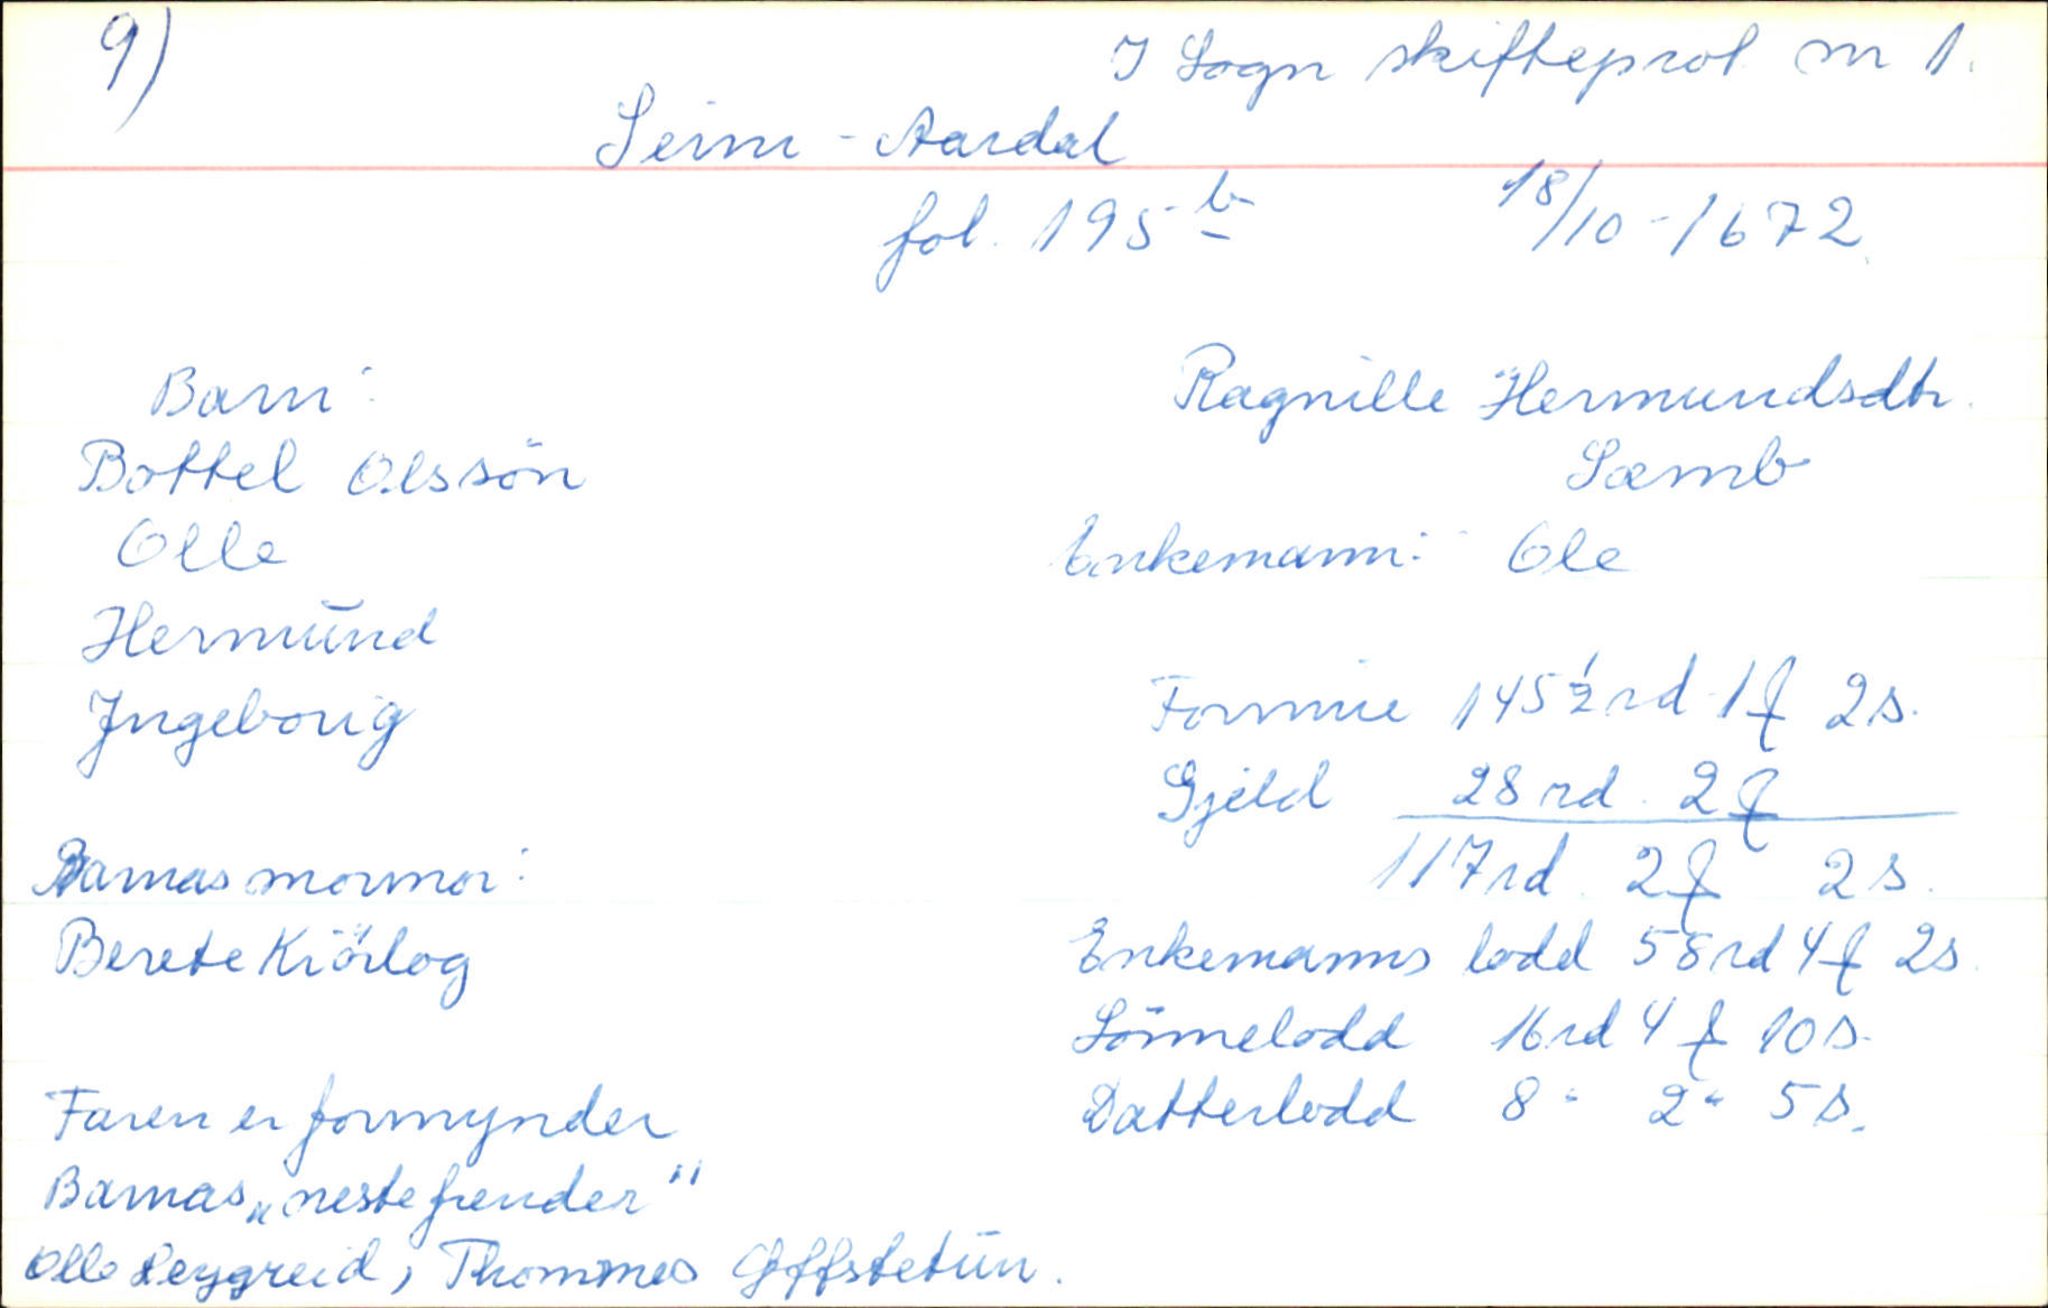 9)
I Sogn skifteprot nr 1.
Seim - Aardal
fol. 195 b
18/10-1672.
Barn:
Bottel Olssön
Olle
Hermŭnd
Ingeborig
Barnas mormor:
Berete Kiörlog
Faren er formynder
Barnas „neste frender"
Olle Leygreid, Thommes Offstetŭn.
Ragnille Hermundsdtr.
Sæmb
Enkemann: Ole
Formue 145 1/2 rd 1 f 2 s.
Gjeld 28 rd. 2 f
117 rd. 2 f 2 s.
Enkemanns lodd 58 rd 4 f 2 s.
Sönnelodd 16 rd 4 f 10 s.
Datterlodd 8 " 2 " 5 s.